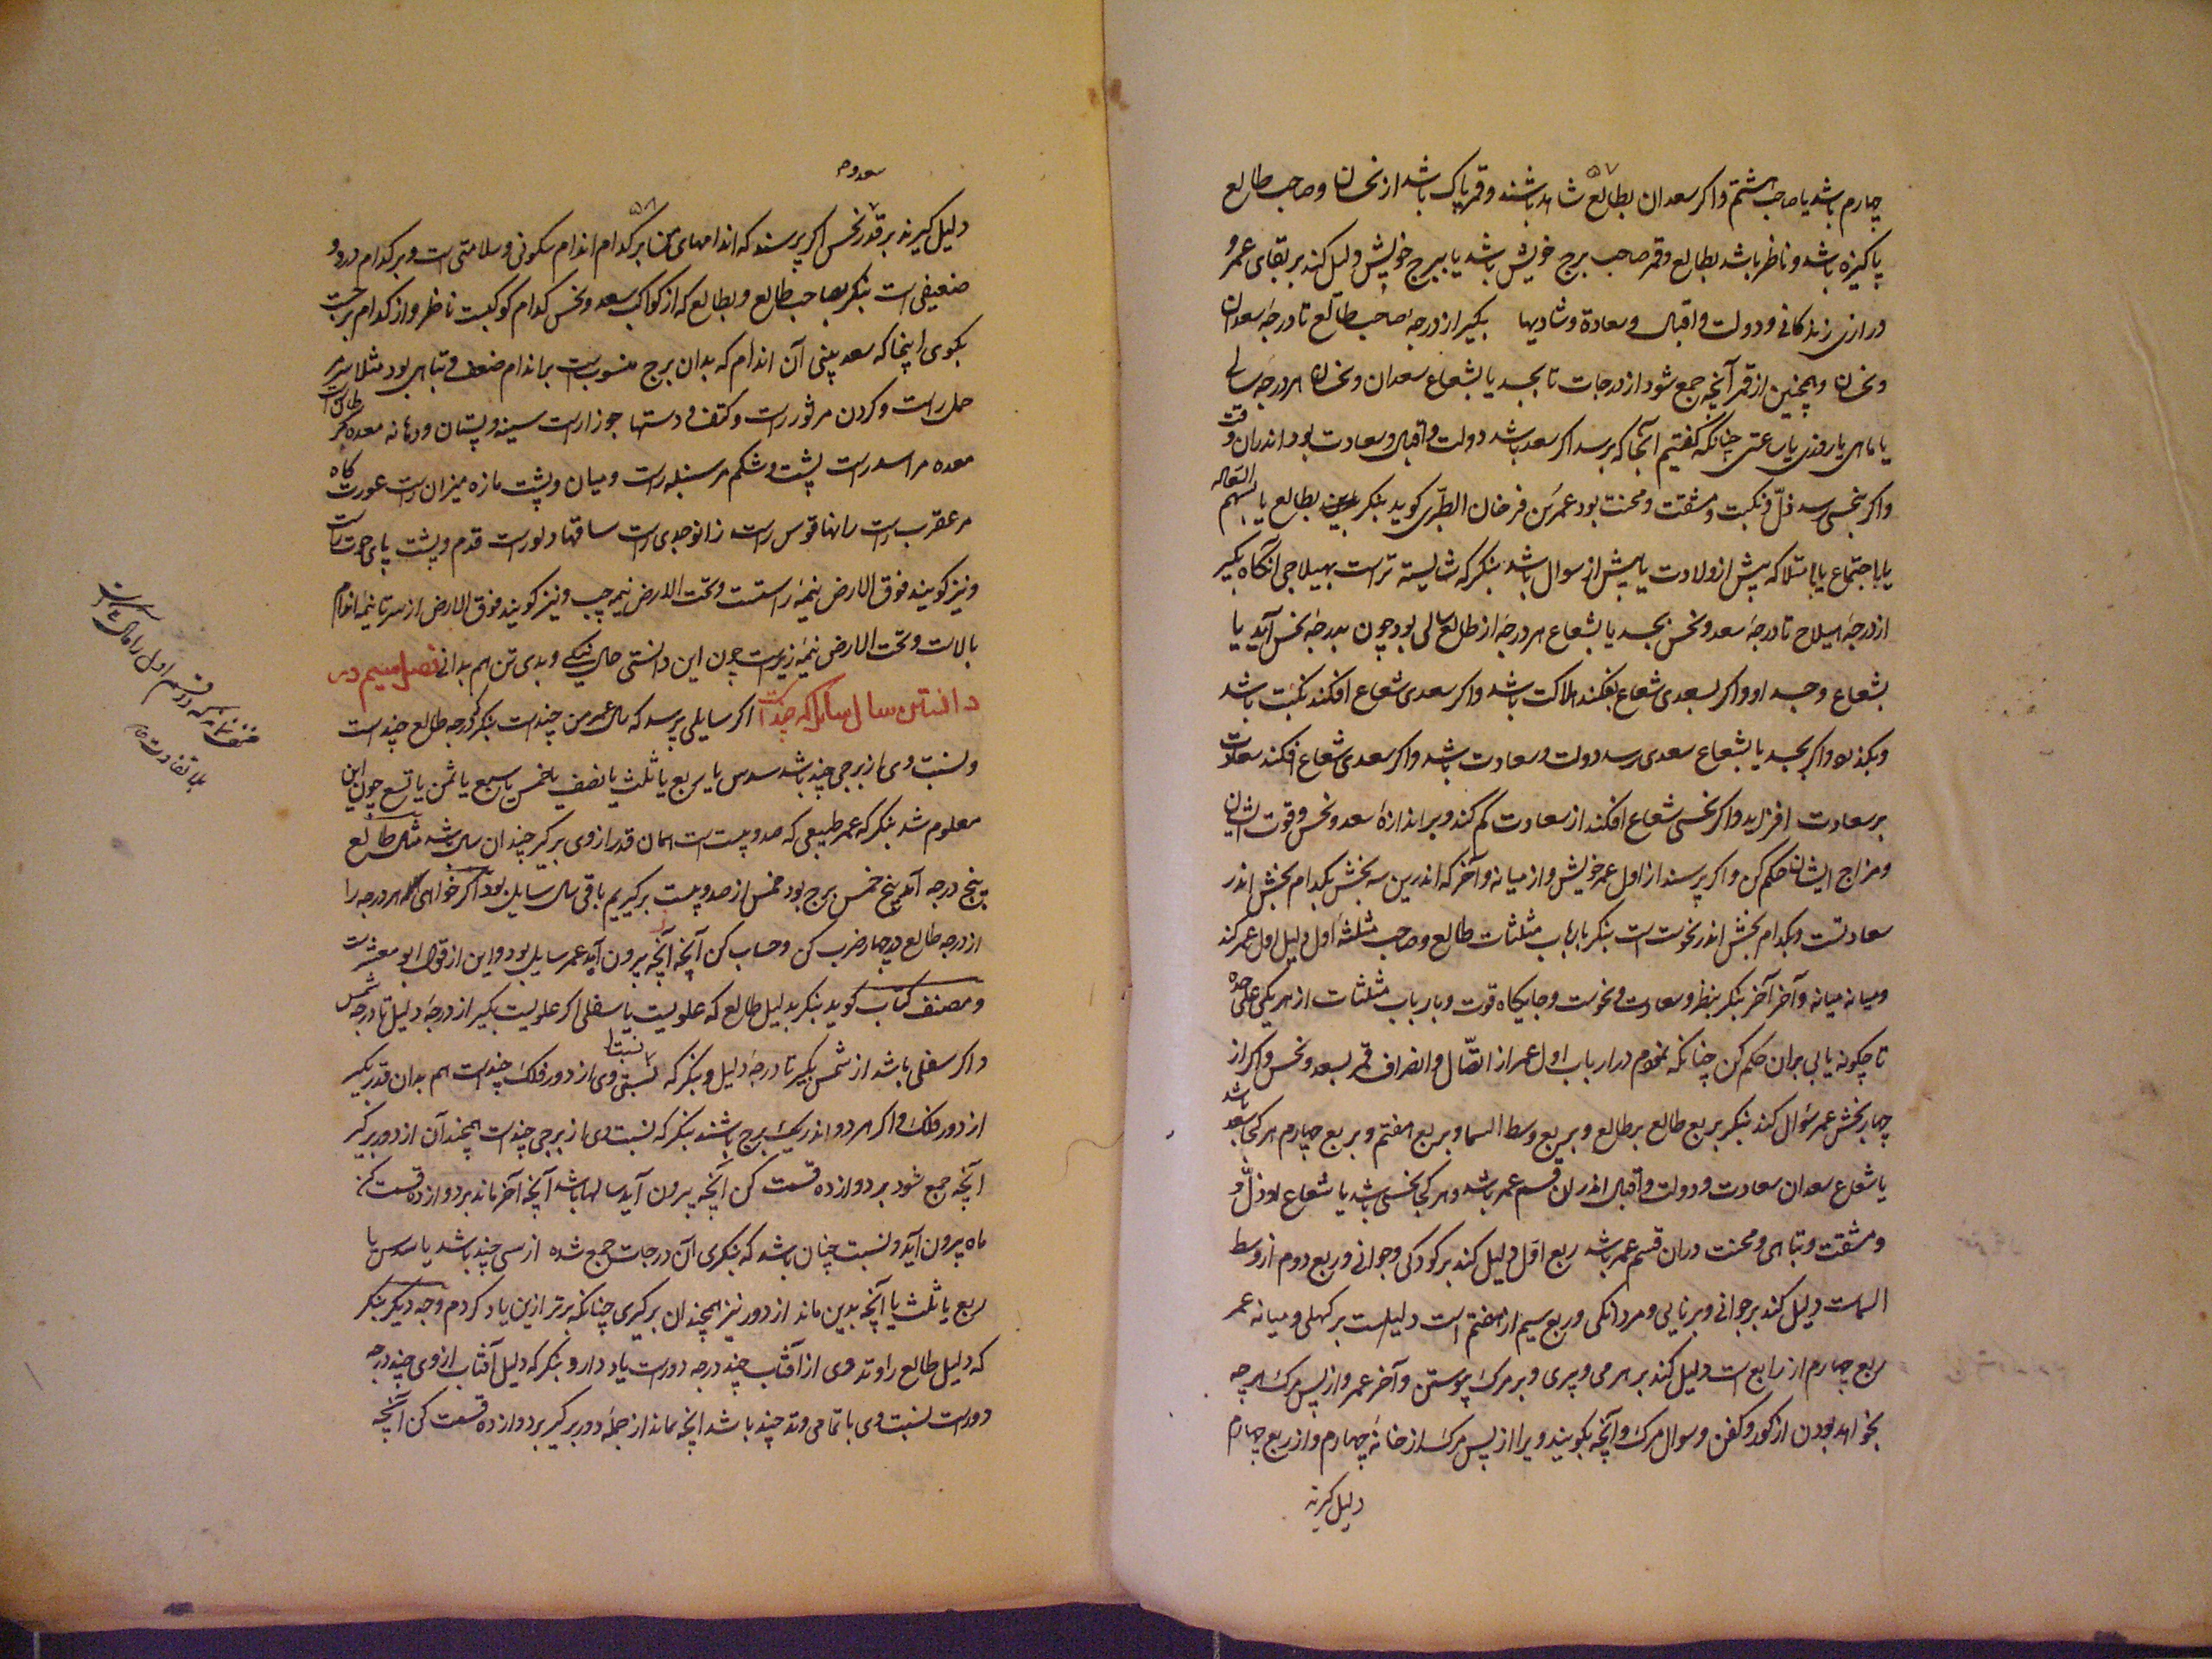 ۵۷
چهارم باشد یا صاحب هشتم و اکر سعدان بطالع شاهد باشند و قمر پاک باشد از نحسان و صاحب طالع
پاکیزه باشد و ناظر باشد بطالع و قمر صاحب برج خویش باشد یا ببرج خویش دلیل کند بر بقای عمر و
درازی زندکانی و دولت و اقبال و سعادة و شادیها بکیر از درجهٔ صاحب طالع تا درجهٔ سعدان
و نحسان و همچنین از قمر آنچه جمع شود از درجات تا بجسد یا بشعاع سعدان و نحسان هر درجه سالی
یا ماهی یا روزی یا ساعتی چنانکه کفتیم آنجا که برسد اکر سعد باشد دولت و اقبال و سعادت بود اندران وقت
و اکر نحس رسد ذلّ و نکبت و مشقت و محنت بود عمر بن فرخان الطبّری کوید بنکر بطالع یا بسهم السّعاله
یا باجتماع یا بامتلا که پیش از ولادت یا پیش از سوال باشد بنکر که شایسته تراست بهیلاجی آنکاه بکیر
از درجهٔ هیلاج تا درجهٔ سعد و نحس بجسد یا بشعاع هر درجه از طالع سالی بود چون بدرجهٔ نحس آید یا
بشعاع و جسد او و اکر سعدی شعاع نفکند هلاکت باشد و اکر سعدی شعاع افکند نکبت باشد
و بکذرد و اکر بجسد یا بشعاع سعدی رسد دولت و سعادت باشد و اکر سعدی شعاع افکند سعادت
بر سعادت افزاید و اکر نحسی شعاع افکند از سعادت کم کند و بر اندازهٔ سعد و نحس و قوت ایشان
و مزاج ایشان حکم کن و اکر پرسند از اول عمر خویش و از میانه و آخر که اندرین سه بخش بکدام بخش اندر
سعادتست و بکدام بخش اندر نحوست است بنکر بارباب مثلثات طالع و صاحب مثلثهٔ اول دلیل اول عمر کند
و میانه میانه و آخر آخر بنکر بنظر و سعادت و نحوست و جایکاه قوت و بار باب مثلثات از هر یکی علی حده
تا چکونه یابی بران حکم کن چنانکه نمودم در ارباب اول عمر از اتصّال و انصراف قمر بسعد و نحس و اکر از
چهار بخش عمر سؤال کند بنکر بربع طالع بر طالع و بربع وسط السما و بربع هفتم و بربع چهارم هر کجا سعد باشد
یا شعاع سعدان سعادت و دولت و اقبال اندران قسم عمر باشد و هر کجا نحس باشد یا شعاع او ذلّ و
و مشقت و تباهی و محنت دران قسم عمر باشد ربع اول دلیل کند بر کودکی و جوانی و ربع دوم از وسط
السماست دلیل کند بر جوانی و برنایی و مردانکی و ربع سیم از هفتم است دلیلست بر کهلی و میانه عمر
ربع چهارم از رابع است دلیل کند بر هرمی و پیری و بر مرک پیوستن و آخر عمر و از پس مرک هر چه
بخواهد بودن از کور و کفن و سوال مرک و آنچه بکویند ویرا از پس مرک از خانهٔ چهارم و از ربع چهارم
دلیل کیرند
سعد و م
۵۸
دلیل کیرند بر قدر نحس اکر پرسند که اندامهای من بر کدام اندام سکونی و سلامتی است و بر کدام درد و
ضعیفی است بنکر بصاحب طالع و بطالع که از کواکب سعد و نحس کدام کوکبست ناظر و از کدام برجست
بکوی اینجا که سعد بینی آن اندام که بدان برج منسوبست براندام ضعف و تباهی بود مثلا سر مر
حمل راست و کردن مر ثور راست و کتف و دستها جوزا راست سینه و پستان و دهانه معده مر سرطان راست
معده مر اسد راست پشت و شکم مر سنبله راست و میان و پشت مازه میزان راست عورت کاه
مر عقرب راست رانها قوس راست زانو جدی راست ساقها دلو راست قدم و پشت پای حوت راست
و نیز کویند فوق الارض نیمهٔ راستست و تحت الارض نیمه چپ و نیز کویند فوق الارض از سر تا نیمهٔ اندام
بالاست و تحت الارض نیمهٔ زیرست چون این دانستی حال نیکی و بدی تن هم بدانی فصل سیم در
دانستن سال سایل که چند است اکر سایلی پرسد که سال عمر من چندست بنکر که درجه طالع چند است
و نسبت وی از برجی چند باشد سدس یا ربع یا ثلث یا نصف یا خمس یا سبع یا ثمن یا تسع چون این
معلوم شد بنکر که عمر طبیعی که صد و بیست است همان قدر از وی برکیر چندان سال باشد مثال طالع
پنج درجه آمد پنج خمس برج بود خمس از صد و بیست برکیریم باقی سال سایل بود اکر خواهی هر درجه را
از درجه طالع در چهار ضرب کن و حساب کن آنچه آنچه بیرون آید عمر سایل بود و این از قول ابو معشرست
و مصنف کتاب کوید بنکر بدلیل طالع که علویست یا سفلی اکر علویست بکیر از درجهٔ دلیل تا درجه شمس
و اکر سفلی باشد از شمس بکیر تا درجهٔ دلیل و بنکر که نسبتی وی از دور فلک چندست هم بدان قدر بکیر
از دور فلک و اکر هر دو اندر یک برج باشند بنکر که نسبت وی از برجی چندست همچندان از دور برکیر
آنچه جمع شود بر دوازده قسمت کن آنچه بیرون آید سالها باشد آنچه آخر ماند بر دوازده قسمت کن
ماه بیرون آید و نسبت چنان باشد که بنکری آن درجات جمع شده از سی چند باشد یا سدس یا
ربع یا ثلث یا آنچه بدین ماند از دور نیز همچندان برکیری چنانکه برتر ازین یاد کردم وجه دیکر بنکر
که دلیل طالع را وتد وی از آفتاب چند درجه دورست یاد دار و بنکر که دلیل آفتاب از وی چند درجه
دورست نسبت وی با تمامی وتد چند باشد آنچه ماند از جملهٔ دور برکیر بر دوازده قسمت کن آنچه
نسبتا
بلا تفاوت